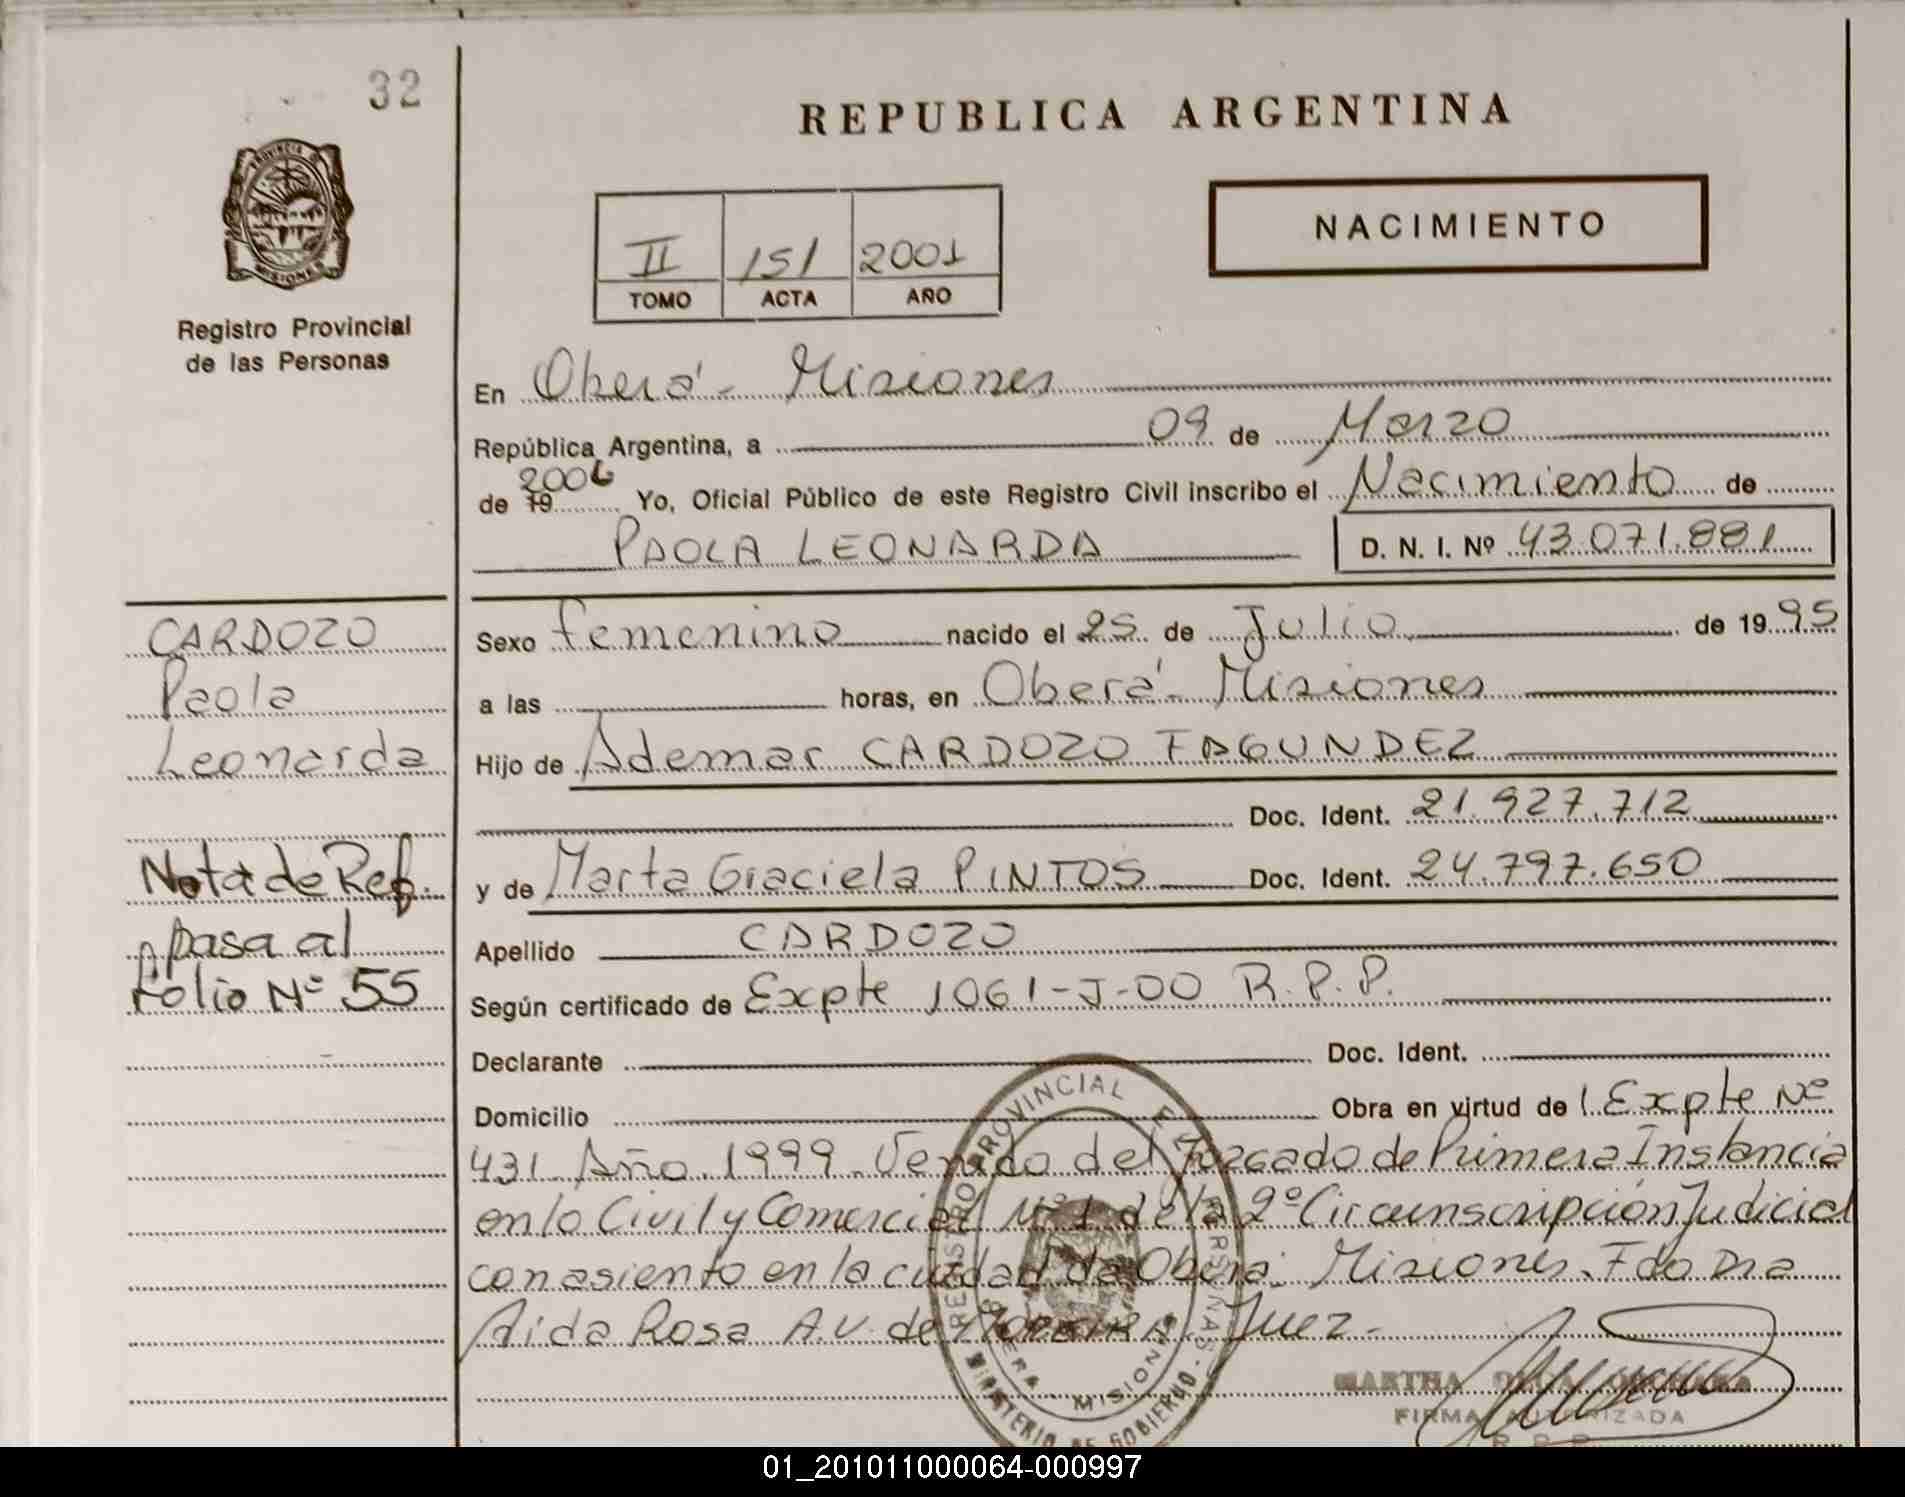 32
REPUBLICA ARGENTINA
PROVINCIA DE
MISIONES
Registro Provincial
de las Personas
NACIMIENTO
II 151 2001
TOMO ACTA AÑO
En Oberá - Misiones
República Argentina, a 09 de Marzo
de 19 2001 Yo, Oficial Público de este Registro Civil inscribo el Nacimiento de
PAOLA LEONARDA D. N. I. Nº 43.071.881
CARDOZO
Paola
Leonarda
Nota de Ref.
pasa al
folio Nº 55
Sexo femenino nacido el 25 de Julio de 1995
a las horas, en Oberá - Misiones
Hijo de Ademar CARDOZO FAGUNDEZ
Doc. Ident. 21.927.712
y de Marta Graciela PINTOS Doc. Ident. 24.797.650
Apellido CARDOZO
Según certificado de Expte 1061-J-00 R.P.P.
Declarante Doc. Ident.
Domicilio Obra en virtud de Expte Nº
431 - Año 1999 - Venido del Juzgado de Primera Instancia
en lo Civil y Comercial Nº 1 de la 2º Circunscripción Judicial
con asiento en la ciudad de Oberá - Misiones. Fdo Dra
Aida Rosa A.V. de Juez -
REGISTRO PROVINCIAL PERSONAS
MISIONES
MINISTERIO DE GOBIERNO
MARTHA
FIRMA AUTORIZADA
R. P. P.
01_201011000064-000997